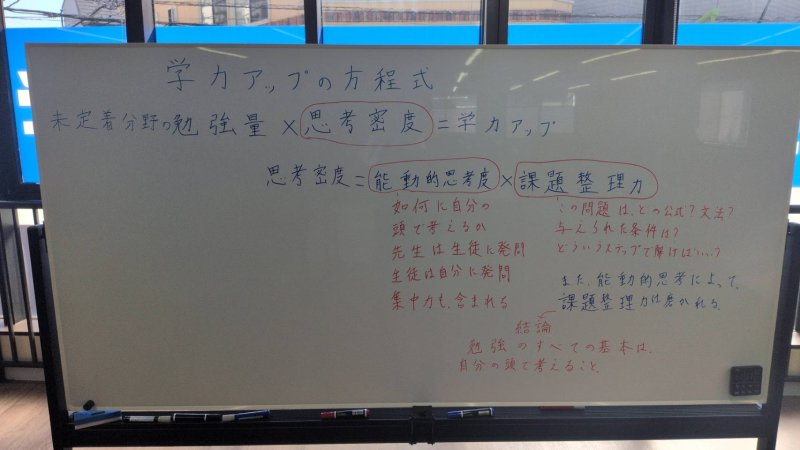 学力アップの方程式
未定着分野の勉強量×思考密度=学力アップ
思考密度=能動的思考度×課題整理力
如何に自分の
頭で考えるか
先生は生徒に発問
生徒は自分に発問
集中力も、含まれる
この問題は、どの公式?文法?
与えられた条件は?
どういうステップで解けばいい?
また、能動的思考によって、
課題整理力は磨かれる。
結論
勉強のすべての基本は、
自分の頭で考えること。